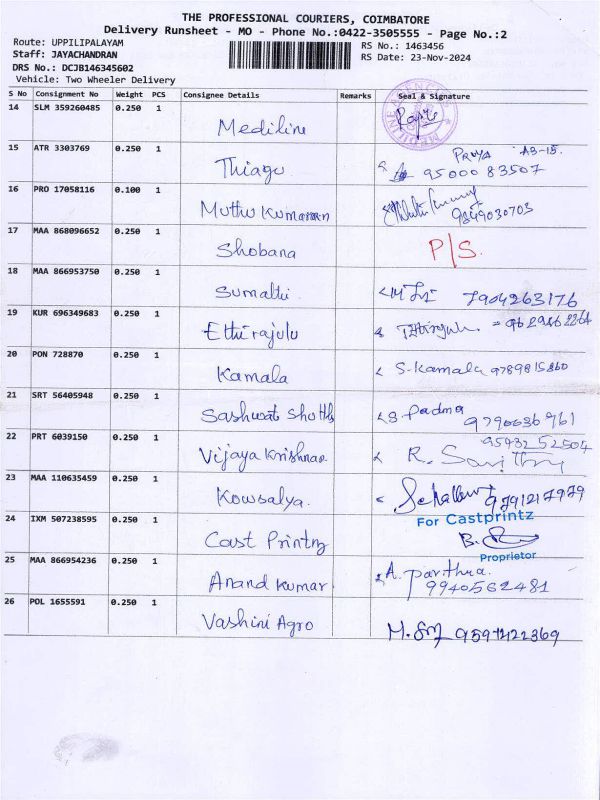 THE PROFESSIONAL COURIERS, COIMBATORE
Delivery Runsheet - MO - Phone No.:0422-3505555 - Page No.:2
Route: UPPILIPALAYAM
RS No.: 1463456
Staff: JAYACHANDRAN
RS Date: 23-Nov-2024
DRS No.: DCJB146345602
Vehicle: Two Wheeler Delivery
S No Consignment No Weight PCS Consignee Details Remarks Seal & Signature
14 SLM 359260485 0.250 1
Mediline
15 ATR 3303769 0.250 1 Priya A3-15.
Thiagu 95000 83507
16 PRO 17058116 0.100 1
Muthu Kumaran 9849030703
17 MAA 868096652 0.250 1
Shobana P/S.
18 MAA 866953750 0.250 1
Sumathi 7904263176
19 KUR 696349683 0.250 1
Ethirajulu
20 PON 728870 0.250 1
Kamala S. Kamala 9789815860
21 SRT 56405948 0.250 1
Sashwat padma 9790036961
22 PRT 6039150 0.250 1 95432 52504
Vijaya Krishnan R.
23 MAA 110635459 0.250 1
Kowsalya. 9791217979
24 IXM 507238595 0.250 1 For Castprintz
Cast Printz
Proprietor
25 MAA 866954236 0.250 1 A.
Anand Kumar 9940562481
26 POL 1655591 0.250 1
Vashini Agro